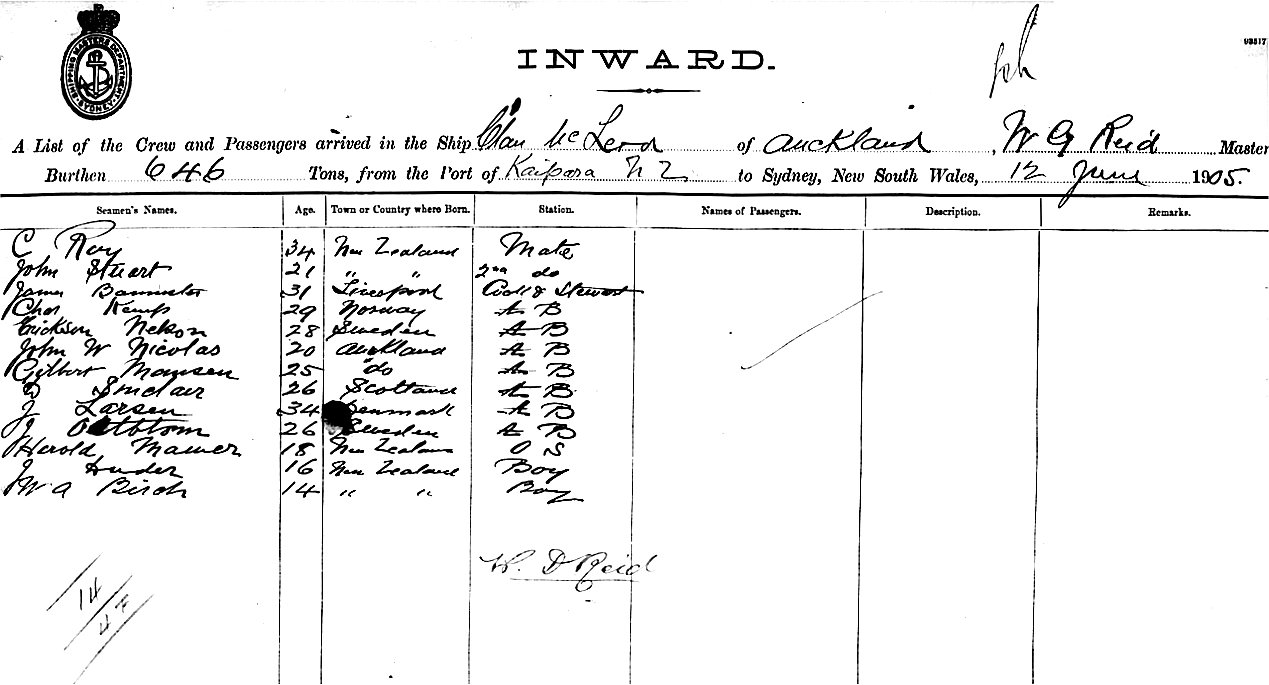 SHIPPING MASTER'S DEPARTMENT SYDNEY
93517
INWARD.
A List of the Crew and Passengers arrived in the Ship Clan McLeod of Auckland, W G Reid Master
Burthen 646 Tons, from the Port of Kaipara N Z to Sydney, New South Wales, 12 June 1905.
Seamen's Names. Age. Town or Country where Born. Station. Names of Passengers. Description. Remarks.
C Roy 34 New Zealand Mate
John Stuart 21 " " 2nd do
James Bannister 31 Liverpool Cook & Steward
Chas Kemp 29 Norway A B
Erickson Nelson 28 Sweden A B
John W Nicolas 20 Auckland A B
Gilbert 25 do A B
D Sinclair 26 Scotland A B
J Larsen 34 Denmark A B
J 26 Sweden A B
Herold 18 New Zealand O S
J 16 New Zealand Boy
W A Birch 14 " " Boy
W. D Reid
14
47